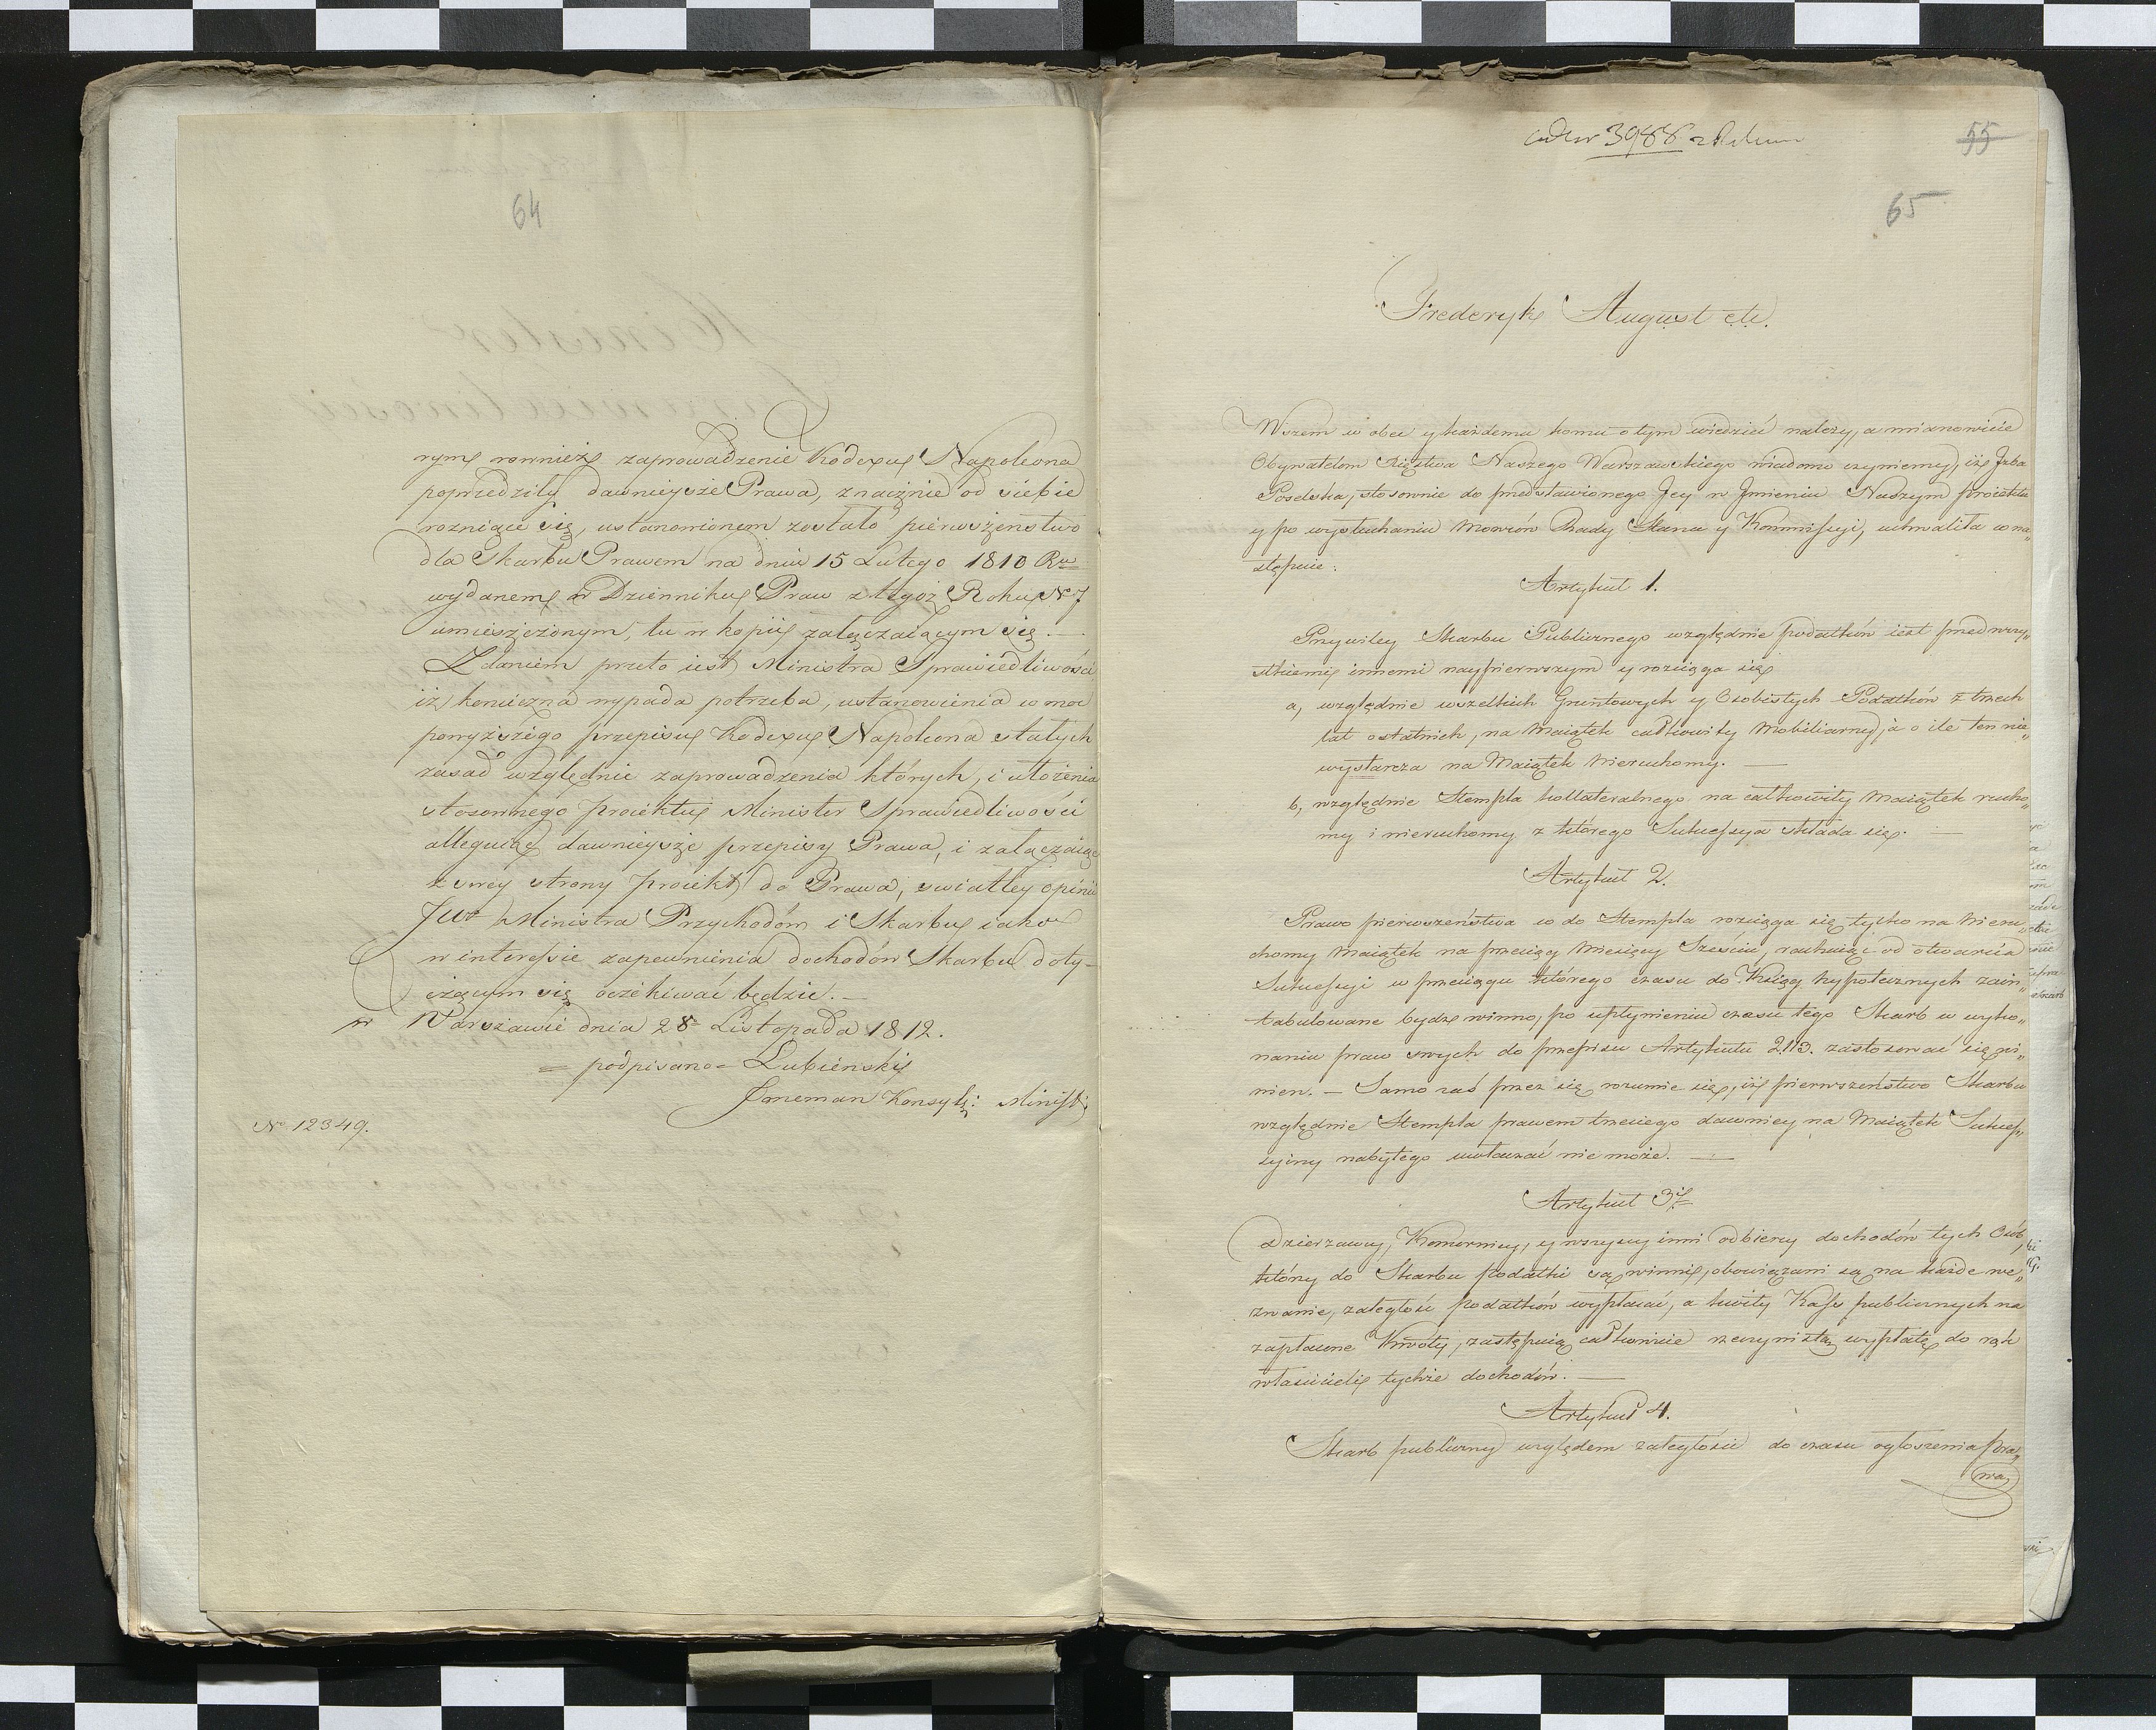 64
rym rownież zaprowadzenie Kodexu Napoleona
poprzedziły dawnieysze Prawa, znacznie od siebie
rozniące się, ustanowionem zostało pierwszeństwo
dla Skarbu Prawem na dniu 15 Lutego 1810 Ru
wydanem w Dzienniku Praw z tegoż Roku No 7
umieszczonym, tu w kopii załączaiącym się. —
Zdaniem przeto iest Ministra Sprawiedliwości
iż konieczna wypada potrzeba, ustanowienia w moc
powyższego przepisu Kodexu Napoleona stałych
zasad względnie zaprowadzenia których, i ułożenia
stosownego proiektu Minister Sprawiedliwości
alleguiąc dawnieysze przepisy Prawa, i załączaiąc
z swey strony proiekt do Prawa, swiatłey opinii
JWo Ministra Przychodów i Skarbu iako
w interessie zapewnienia dochodów Skarbu doty-
czącym się oczekiwać będzie. —
w Warszawie dnia 28 Listopada 1812.
= podpisano = Lubieński
Konsyl: Minist:
No 12349.
3988
55
65
Frederyk August etc.
Wszem w obec y każdemu komu o tym wiedzieć należy, a mianowicie
Obywatelom Xięstwa Naszego Warszawskiego wiadomo czyniemy, iż Izba
Poselska, stosownie do przedstawionego Jey w Jmieniu Naszym proiektu
y po wysłuchaniu Mowców Rady Stanu y Kommissyi, uchwaliła co na„
stępuie:
Artykuł 1.
Przywiley Skarbu Publicznego względnie podatków iest przed wszy„
stkiemi innemi naypierwszym y rozciąga się
a, względnie wszelkich Gruntowych y Osobistych Podatków z trzech
lat ostatnich, na Maiątek całkowity Mobiliarny, a o ile ten nie
wystarcza na Maiątek Nieruchomy. —
b, względnie Stempla kollateralnego na całkowity Maiątek rucho„
my i nieruchomy z którego Sukcessya składa się. —
Artykuł 2.
Prawo pierwszeństwa co do Stempla rozciąga się tylko na Nieru„
chomy Maiątek na przeciąg Miesięcy Sześciu, rachuiąc od otwarcia
Sukcessyi w przeciągu którego czasu do Ksiąg hypotecznych zain„
tabulowane bydź winno, po upłynieniu czasu tego Skarb w wyko„
naniu praw swych do przepisu Artykułu 2113. zastosować się wi„
nien. — Samo zaś przez się rozumie się, iż pierwszeństwo Skarbu
względnie Stempla prawem trzeciego dawniey na Maiątek Sukces„
syiny nabytego uwłaczać nie może. —
Artykuł 3ci
Dzierzawcy, Komornicy, y wszyscy inni odbiercy dochodów tych Osób,
którzy do Skarbu podatki są winni, obowiązani są na każde we„
zwanie, zaległość podatków wypłacać, a kwity Kass publicznych na
zapłacone Kwoty, zastępuią całkowicie rzeczywistą wypłatę do rąk
właścicieli tychże dochodów. —
Artykuł 4.
Skarb publiczny względem zaległości do czasu ogłoszenia Pra„
wa,